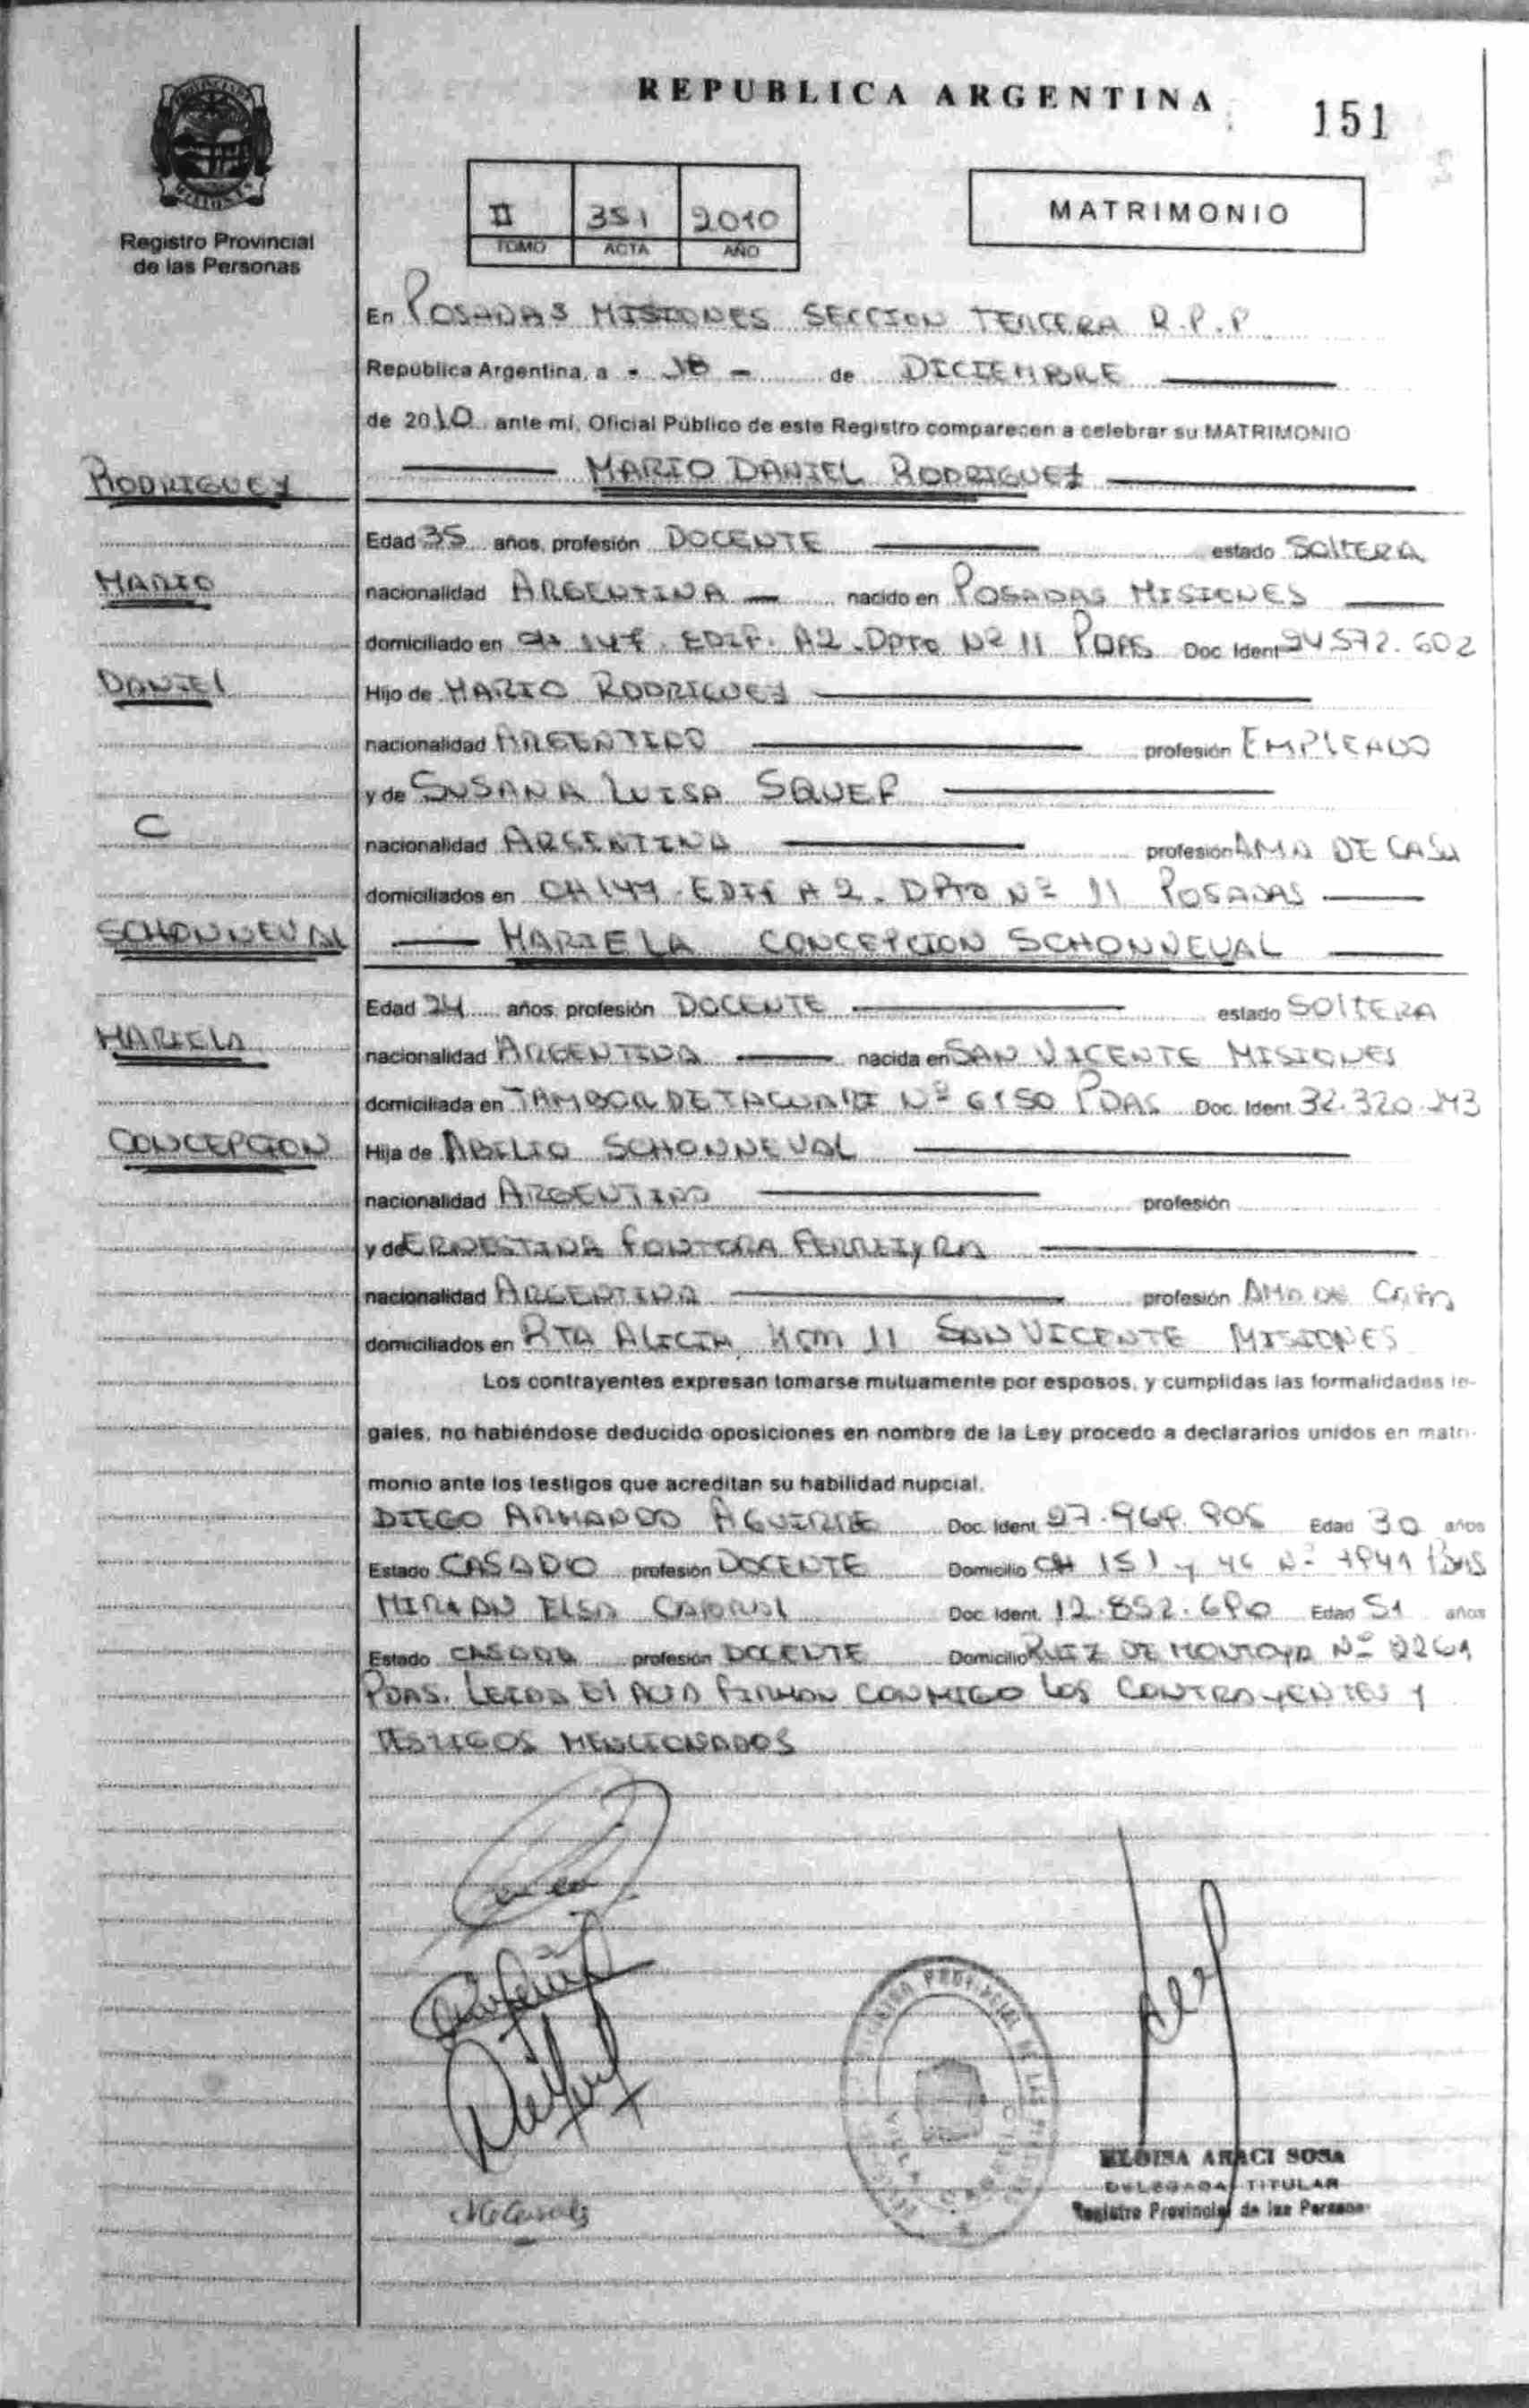 REPUBLICA ARGENTINA
151
Registro Provincial
de las Personas
II 351 2010
TOMO ACTA AÑO
MATRIMONIO
En POSADAS MISIONES SECCION TERCERA R.P.P
República Argentina, a - 18 - de DICIEMBRE
de 2010 ante mí, Oficial Público de este Registro comparecen a celebrar su MATRIMONIO
RODRIGUEZ
MARIO DANIEL RODRIGUEZ
Edad 35 años, profesión DOCENTE estado SOLTERA
MARIO
nacionalidad ARGENTINA nacido en POSADAS MISIONES
domiciliado en CH 147. EDIF. A2. DPTO Nº 11 PDAS Doc. Ident 24572.602
DANIEL
Hijo de MARIO RODRIGUEZ
nacionalidad ARGENTINO profesión EMPLEADO
y de SUSANA LUISA SQUEF
C
nacionalidad ARGENTINA profesión AMA DE CASA
domiciliados en CH 147. EDIF A 2. DPTO Nº 11 POSADAS
SCHONNEVAL
MARIELA CONCEPCION SCHONNEVAL
Edad 24 años, profesión DOCENTE estado SOLTERA
MARIELA
nacionalidad ARGENTINA nacida en SAN VICENTE MISIONES
domiciliada en TAMBOR DE TACUARI Nº 6150 PDAS Doc. Ident. 32.320.243
CONCEPCION
Hija de ABILIO SCHONNEVAL
nacionalidad ARGENTINO profesión
y de ERNESTINA FONTORA FERREIYRA
nacionalidad ARGENTINA profesión AMA DE CASA
domiciliados en RTA ALICIA KM 11 SAN VICENTE MISIONES
Los contrayentes expresan tomarse mutuamente por esposos, y cumplidas las formalidades le-
gales, no habiéndose deducido oposiciones en nombre de la Ley procedo a declararlos unidos en matri-
monio ante los testigos que acreditan su habilidad nupcial.
DIEGO ARMANDO AGUIRRE Doc. Ident. 27.969.905 Edad 30 años
Estado CASADO profesión DOCENTE Domicilio CH 151 y 46 Nº 7941 PDAS
MIRIAN ELSA CABRAL Doc. Ident. 12.852.690 Edad 51 años
Estado CASADA profesión DOCENTE Domicilio RUIZ DE MONTOYA Nº 2261
PDAS. LEIDA El ACTA FIRMAN CONMIGO LOS CONTRAYENTES Y
TESTIGOS MENCIONADOS
ELOISA ARACI SOSA
DELEGADA TITULAR
Registro Provincial de las Personas